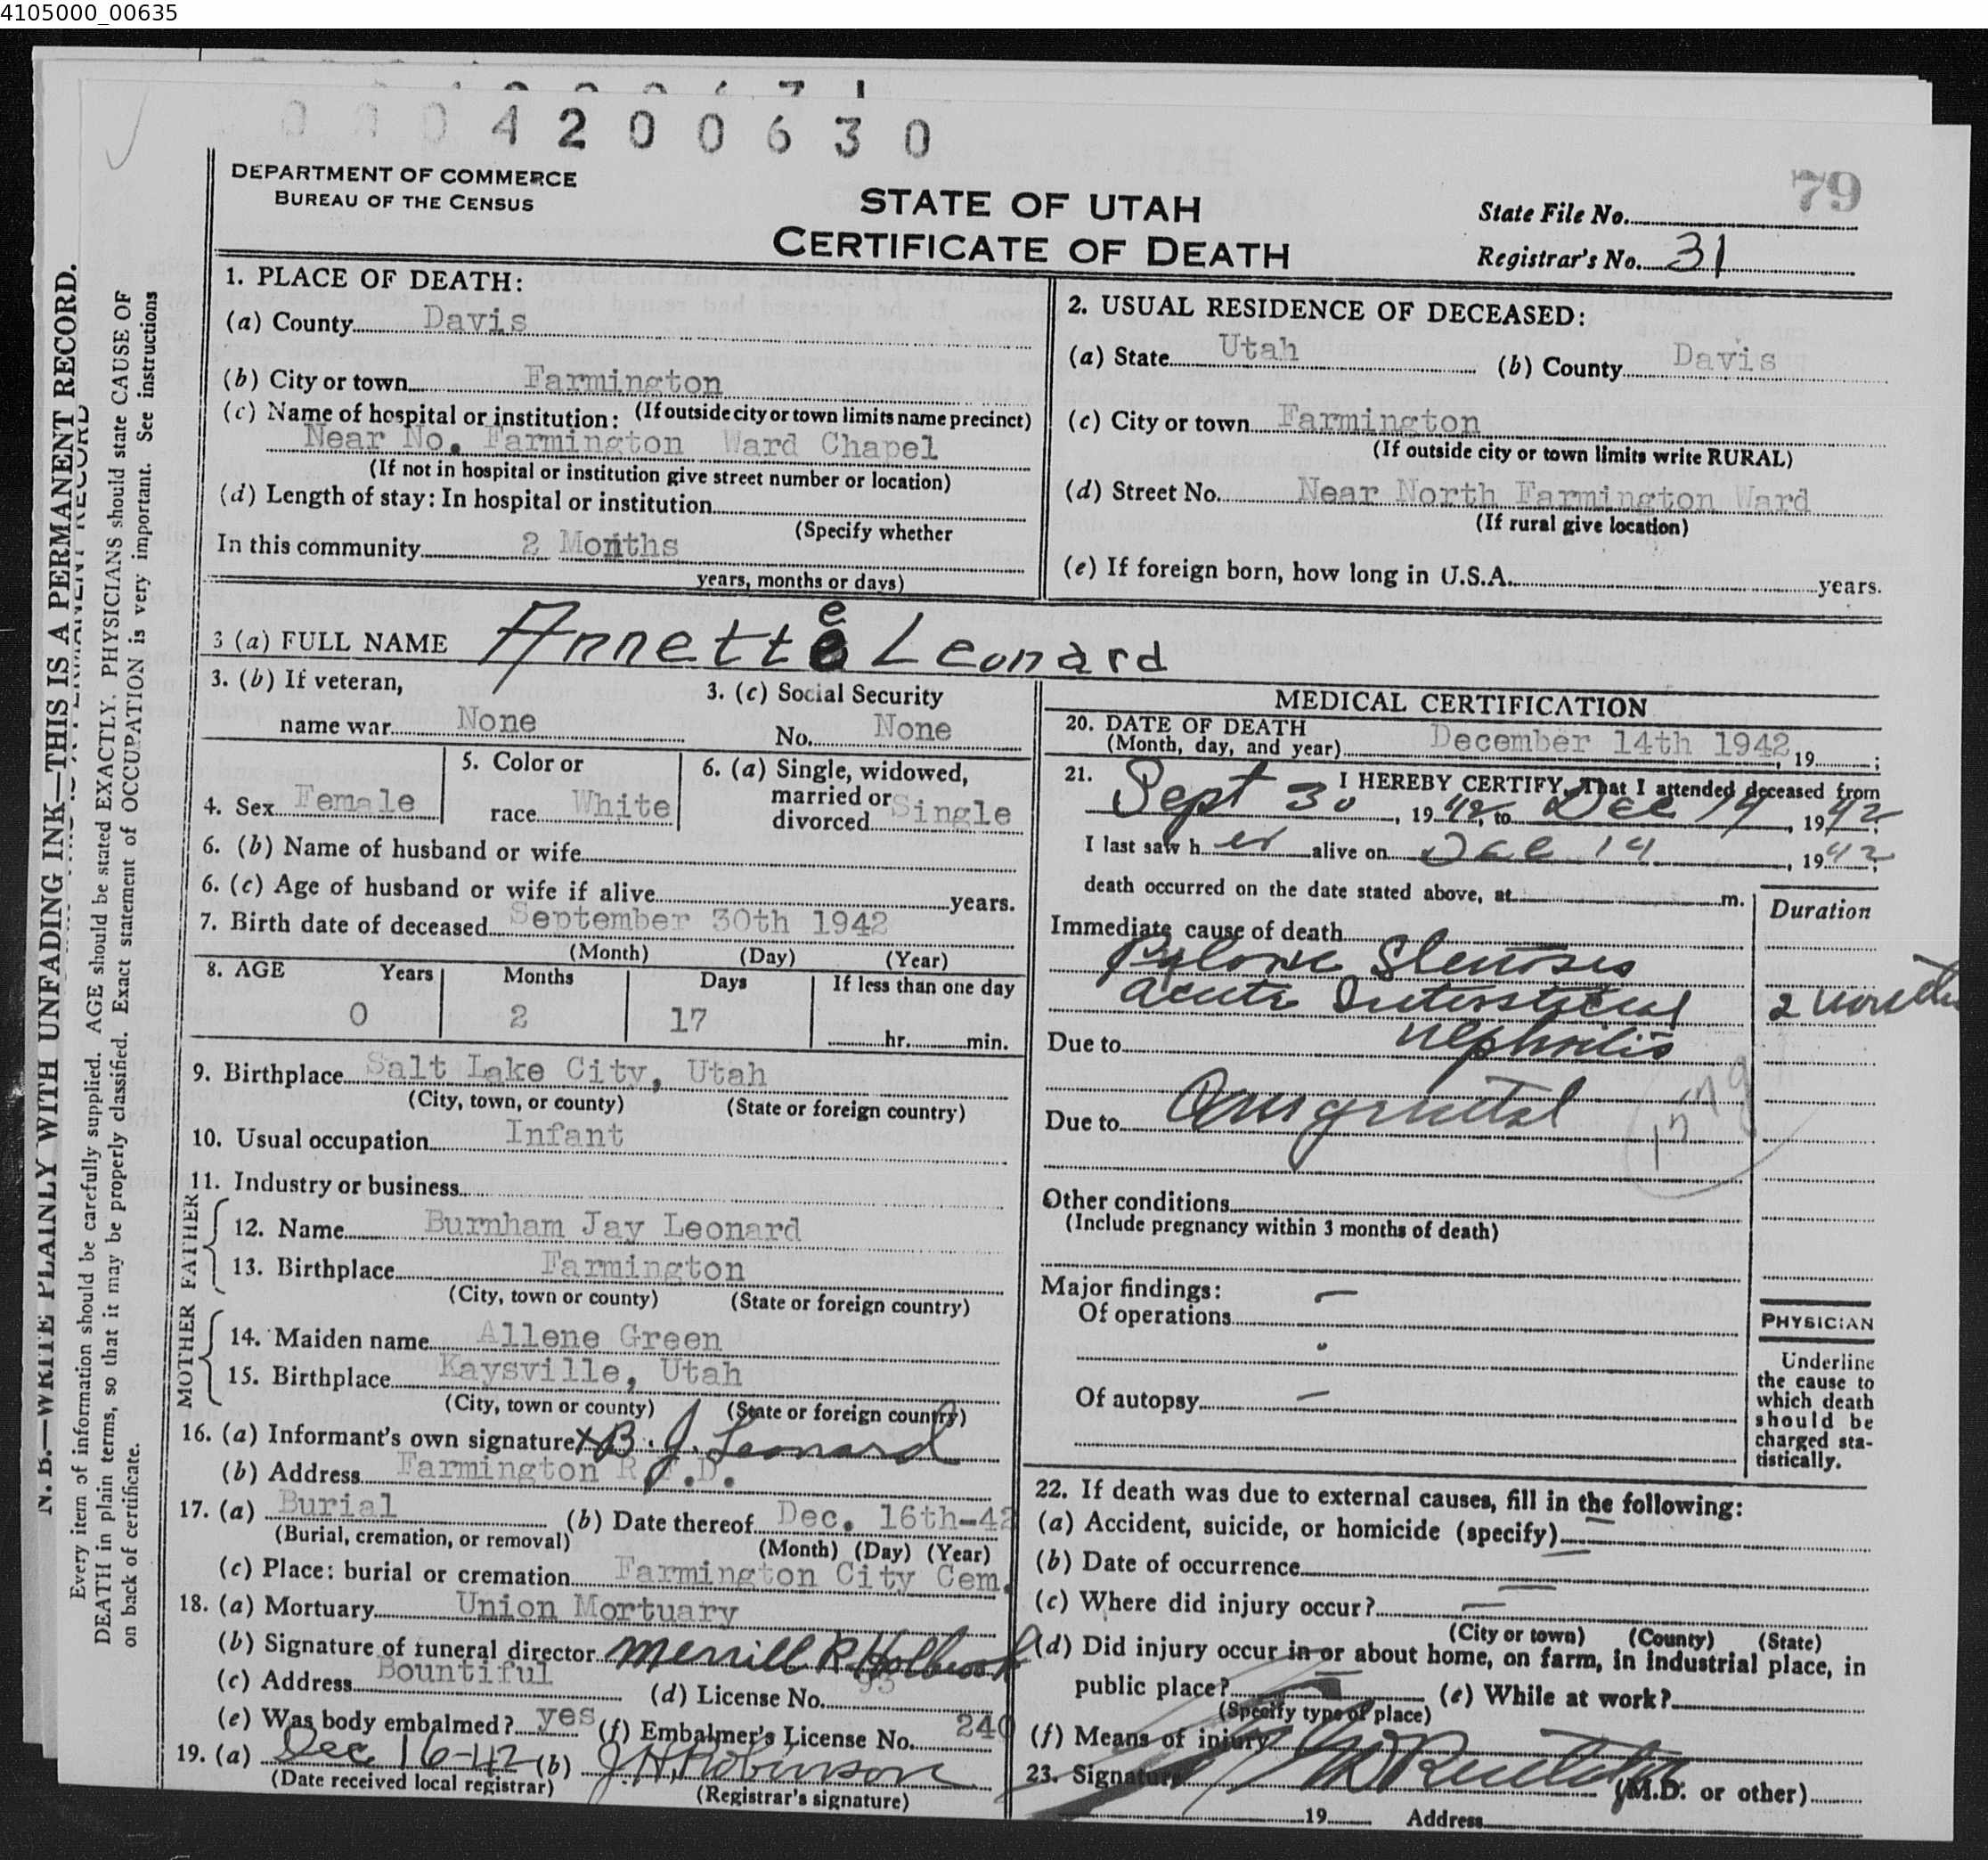 4105000_00635
0 0 0 4 2 0 0 6 3 0
79
DEPARTMENT OF COMMERCE
BUREAU OF THE CENSUS
STATE OF UTAH
CERTIFICATE OF DEATH
State File No.
Registrar's No. 31
N. B.—WRITE PLAINLY WITH UNFADING INK—THIS IS A PERMANENT RECORD.
Every item of information should be carefully supplied. AGE should be stated EXACTLY. PHYSICIANS should state CAUSE OF
DEATH in plain terms, so that it may be properly classified. Exact statement of OCCUPATION is very important. See instructions
on back of certificate.
1. PLACE OF DEATH:
(a) County Davis
(b) City or town Farmington
(c) Name of hospital or institution: (If outside city or town limits name precinct)
Near No. Farmington Ward Chapel
(If not in hospital or institution give street number or location)
(d) Length of stay: In hospital or institution
(Specify whether
In this community 2 Months
years, months or days)
2. USUAL RESIDENCE OF DECEASED:
(a) State Utah (b) County Davis
(c) City or town Farmington
(If outside city or town limits write RURAL)
(d) Street No. Near North Farmington Ward
(If rural give location)
(e) If foreign born, how long in U.S.A. years.
3 (a) FULL NAME Annette Leonard
3. (b) If veteran,
name war None
3. (c) Social Security
No. None
4. Sex Female
5. Color or
race White
6. (a) Single, widowed,
married or
divorced Single
6. (b) Name of husband or wife
6. (c) Age of husband or wife if alive years.
7. Birth date of deceased September 30th 1942
(Month) (Day) (Year)
8. AGE Years Months Days If less than one day
0 2 17 hr. min.
9. Birthplace Salt Lake City, Utah
(City, town, or county) (State or foreign country)
10. Usual occupation Infant
11. Industry or business
FATHER
12. Name Burnham Jay Leonard
13. Birthplace Farmington
(City, town or county) (State or foreign country)
MOTHER
14. Maiden name Allene Green
15. Birthplace Kaysville, Utah
(City, town or county) (State or foreign country)
16. (a) Informant's own signature X B. J. Leonard
(b) Address Farmington R.F.D.
17. (a) Burial (b) Date thereof Dec. 16th-42
(Burial, cremation, or removal) (Month) (Day) (Year)
(c) Place: burial or cremation Farmington City Cem.
18. (a) Mortuary Union Mortuary
(b) Signature of funeral director Merrill R. Holbrook
(c) Address Bountiful (d) License No. 93
(e) Was body embalmed? yes (f) Embalmer's License No. 240
19. (a) Dec 16-42 (b) J. H. Robinson
(Date received local registrar) (Registrar's signature)
MEDICAL CERTIFICATION
20. DATE OF DEATH
(Month, day, and year) December 14th 1942, 19 ;
21. I HEREBY CERTIFY, That I attended deceased from
Sept 30, 1942, to Dec 14, 1942;
I last saw her alive on Dec 14, 1942;
death occurred on the date stated above, at m.
Duration
Immediate cause of death
Pyloric Stenosis
acute Interstitial 2 months
Due to nephritis
Due to Congenital
Other conditions
(Include pregnancy within 3 months of death)
Major findings:
Of operations —
Of autopsy —
PHYSICIAN
Underline
the cause to
which death
should be
charged sta-
tistically.
22. If death was due to external causes, fill in the following:
(a) Accident, suicide, or homicide (specify) —
(b) Date of occurrence —
(c) Where did injury occur? —
(City or town) (County) (State)
(d) Did injury occur in or about home, on farm, in industrial place, in
public place? — (e) While at work?
(Specify type of place)
(f) Means of injury
23. Signature (M.D. or other)
19 Address